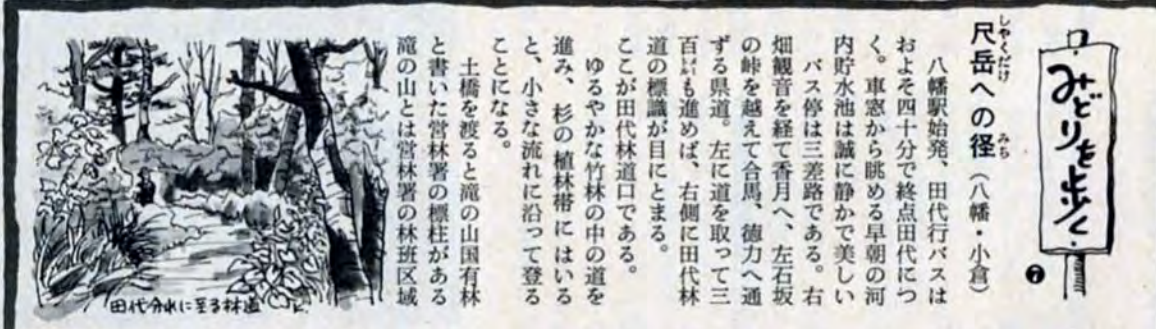 みどりを歩く
7
尺岳への径(八幡・小倉)
しゃくだけ
みち
八幡駅始発、田代行バスは
およそ四十分で終点田代につ
く。車窓から眺める早朝の河
内貯水池は誠に静かで美しい
バス停は三差路である。右
畑観音を経て香月へ、左石坂
の峠を越えて合馬、徳力へ通
ずる県道。左に道を取って三
百㍍も進めば、右側に田代林
道の標識が目にとまる。
ここが田代林道口である。
ゆるやかな竹林の中の道を
進み、杉の植林帯にはいる
と、小さな流れに沿って登る
ことになる。
土橋を渡ると滝の山国有林
と書いた営林署の標柱がある
滝の山とは営林署の林班区域
田代分れに至る林道